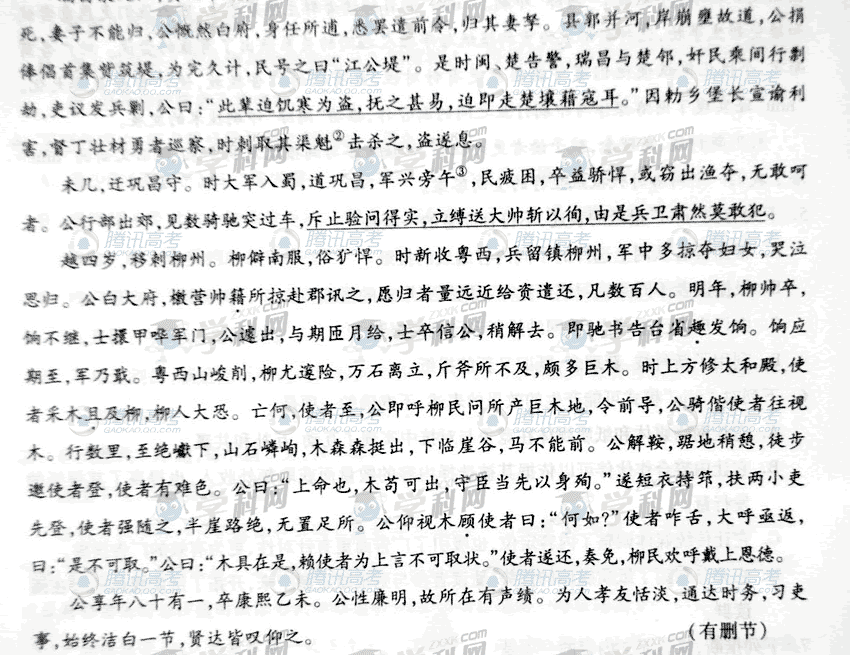 死，妻子不能归，公慨然白府，身任所逋，悉罢遣前令，归其妻孥。县郭并河，岸崩壅故道，公捐
俸倡首集赀筑堤，为完久计，民号之曰“江公堤”。是时闽、楚告警，瑞昌与楚邻，奸民乘间行剽
劫，吏议发兵剿，公曰：“此辈迫饥寒为盗，抚之甚易，迫即走楚壤藉寇耳。”因勅乡堡长宣谕利
害，督丁壮材勇者巡察，时刺取其渠魁②击杀之，盗遂息。
未几，迁巩昌守。时大军入蜀，道巩昌，军兴旁午③，民疲困，卒益骄悍，或窃出渔夺，无敢呵
者。公行部出郊，见数骑驰突过车，斥止验问得实，立缚送大帅斩以徇，由是兵卫肃然莫敢犯。
越四岁，移刺柳州。柳僻南服，俗犷悍。时新收粤西，兵留镇柳州，军中多掠夺妇女，哭泣
思归。公白大府，檄营帅籍所掠赴郡讯之，愿归者量远近给资遣还，凡数百人。明年，柳帅卒，
饷不继，士擐甲哗军门，公遽出，与期匝月给，士卒信公，稍解去。即驰书告台省趣发饷。饷应
期至，军乃戢。粤西山峻削，柳尤邃险，万石离立，斤斧所不及，颇多巨木。时上方修太和殿，使
者采木且及柳，柳人大恐。亡何，使者至，公即呼柳民问所产巨木地，令前导，公骑偕使者往视
木。行数里，至绝巘下，山石嶙峋，木森森挺出，下临崖谷，马不能前。公解鞍，踞地稍憩，徒步
邀使者登，使者有难色。公曰：“上命也，木苟可出，守臣当先以身殉。”遂短衣持筇，扶两小吏
先登，使者强随之，半崖路绝，无置足所。公仰视木顾使者曰：“何如？”使者咋舌，大呼亟返，
曰：“是不可取。”公曰：“木具在是，赖使者为上言不可取状。”使者遂还，奏免，柳民欢呼戴上恩德。
公享年八十有一，卒康熙乙未。公性廉明，故所在有声绩。为人孝友恬淡，通达时务，习吏
事，始终洁白一节，贤达皆叹仰之。
（有删节）